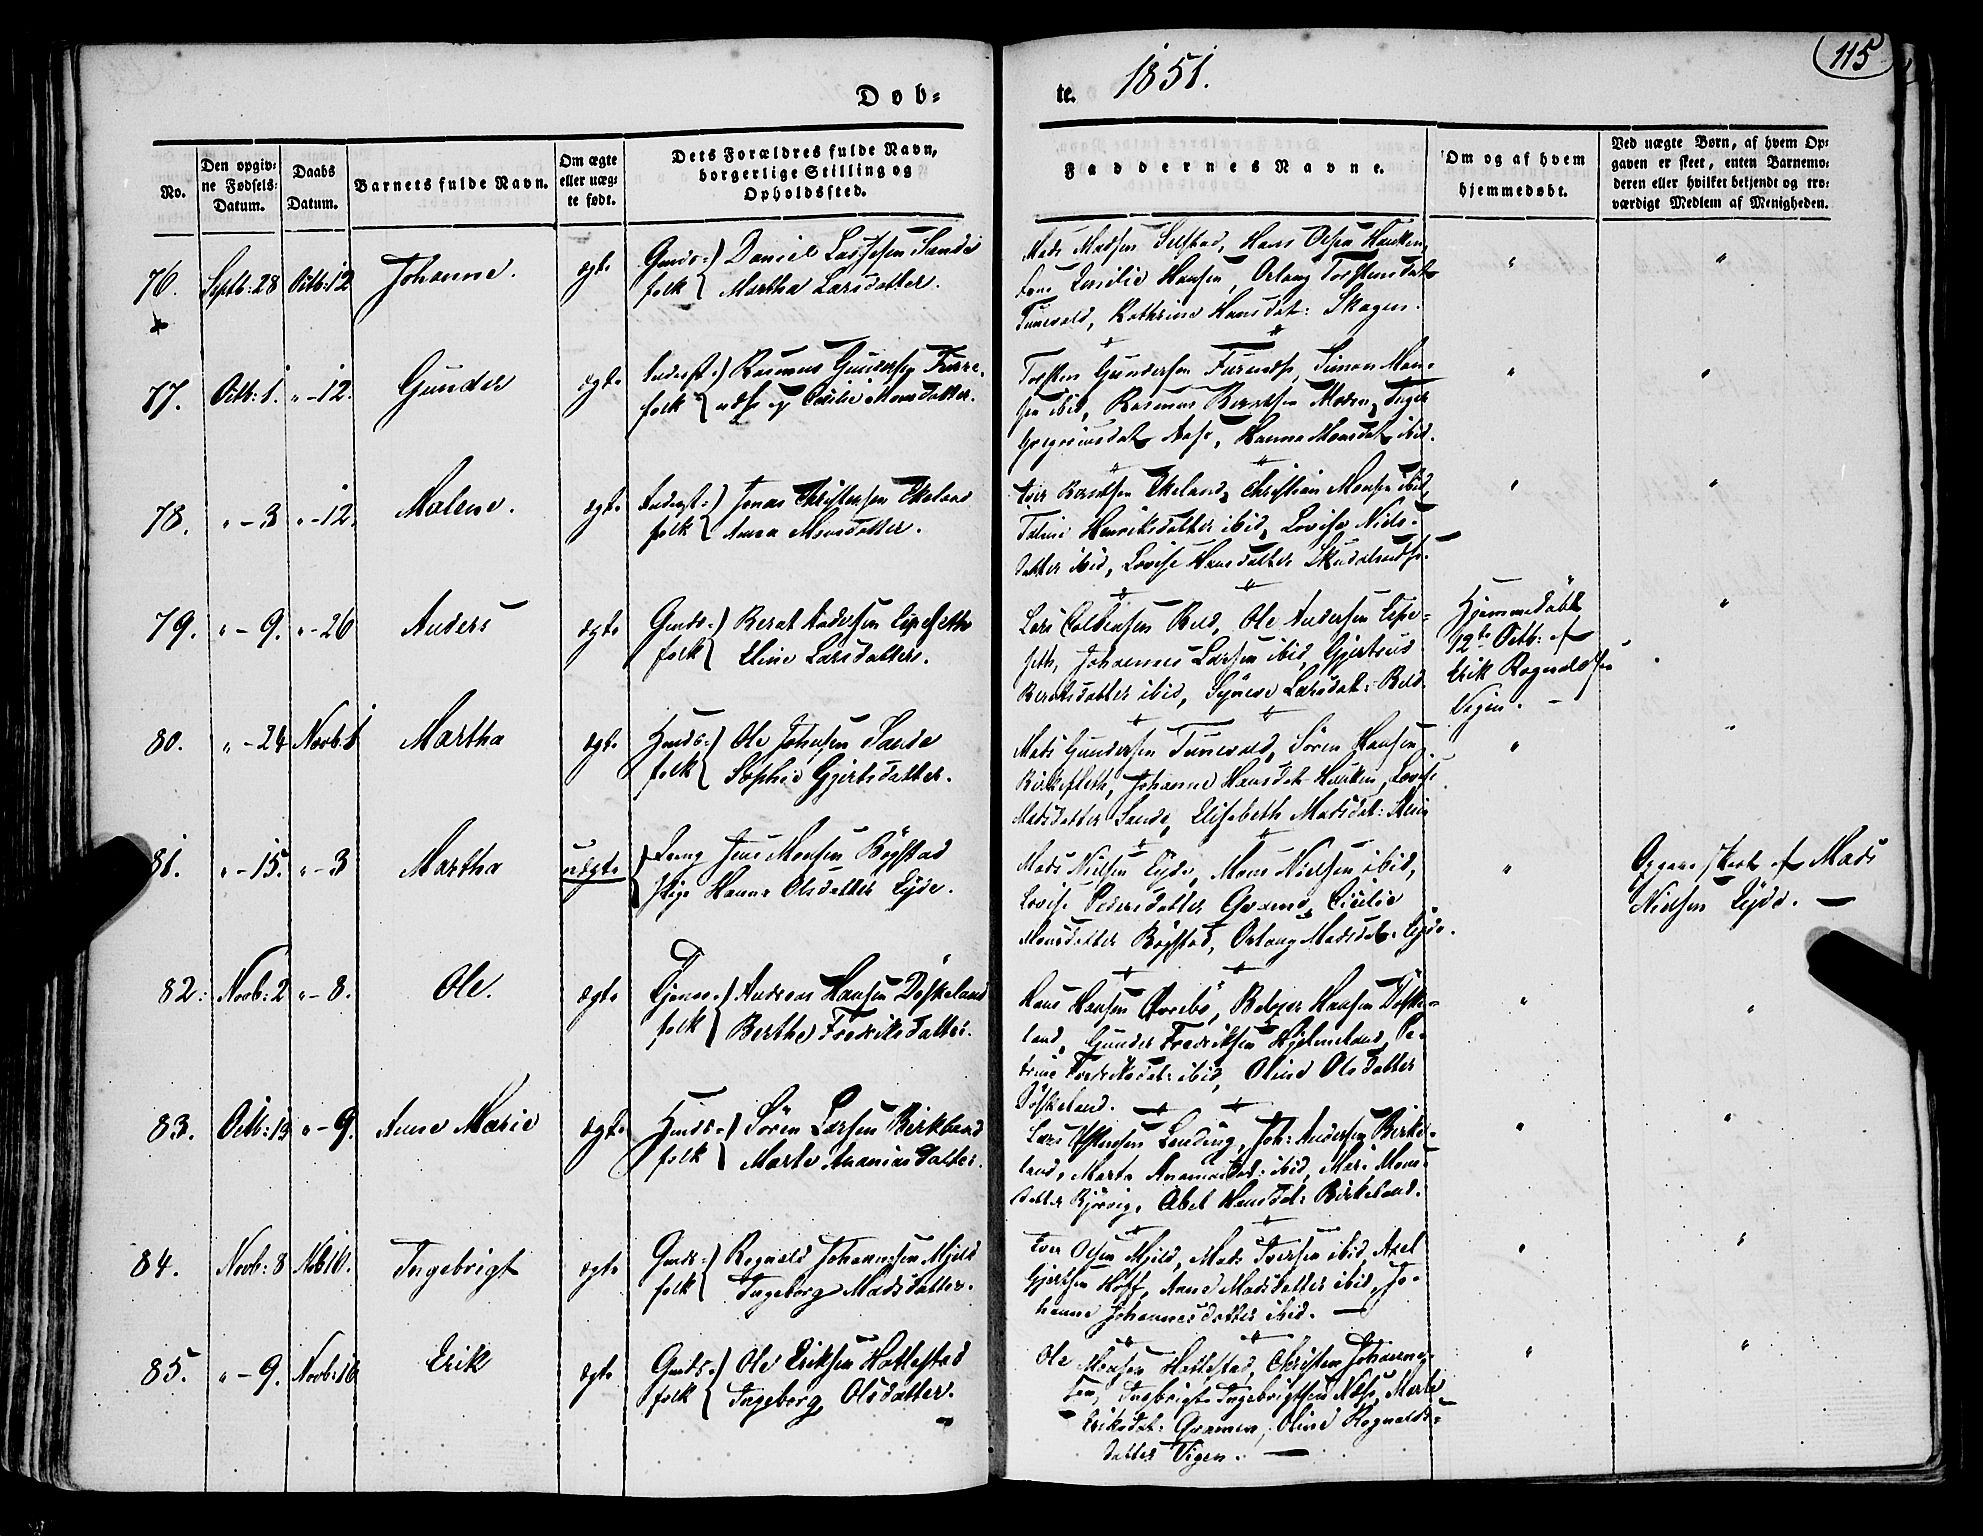 115
Døb-
te. 1851.
No.
Den opgiv-
ne Fødsels-
Datum.
Daabs
Datum.
Barnets fulde Navn.
Om ægte
eller uæg-
te født.
Dets Forældres fulde Navn,
borgerlige Stilling og
Opholdssted.
Faddernes Navne.
Om og af hvem
hjemmedøbt.
Ved uægte Børn, af hvem Op-
gaven er skeet, enten Barnemo-
deren eller hvilket bekjendt og tro-
værdigt Medlem af Menigheden.
76. Septb: 28 Octb: 12 Johanne. ægte
Gmds-) Daniel Lassesen Sande
folk Martha Larsdatter.
Mads Madsen Selstad, Hans Olsen Hauken,
Hansen, Torstensdat
Tunevald, Kathrine Hansdat: Skogen.
77. Octb: 1. " - 12. Gunder ægte
Inderst-) Rasmus Gundersen Furre-
folk og Cicilie Monsdatter.
Torsten Gundersen Simon Mon-
sen ibid, Rasmus Berntsen Inger
Gregoriusdat Aase, Hanna Monsdat ibid.
78. " - 3 " - 12. Malene. ægte
Inderst-) Jonas Christensen Ekeland
folk Anna Monsdatter.
Iver Berntsen Ekeland, Christian Monsen ibid,
Henriksdatter ibid, Lovise Niels-
datter ibid, Lovise Hansdatter
79. " - 9. " - 26 Anders ægte
Gmds-) Bernt Andersen Espeseth
folk Eline Larsdatter.
Lars Bild, Ole Andersen Espe-
seth, Johannes Larsen ibid, Gjertrud
Berntsdatter ibid, Synneve Larsdat: Bild
Hjemmedöbt
12te Octb: af
Erik Rognaldsen
Vigen. -
80. " - 24 Novb: 1 Martha ægte
Hmds-) Ole Johnsen Sande
folk Sophie Gjertsdatter.
Mads Gundersen Tunevald, Sören Hansen
Birkefleth, Johanne Hansdat Hauken, Lovise
Madsdatter Sande, Elisabeth Madsdat:
81. " - 15. " - 3 Martha uægte
Ung Jens Monsen Bögstad
Pige Hanna Olsdatter Eyde.
Mads Nielsen Eyde, Mons Nielsen ibid,
Lovise Pedersdatter Cicilie
Monsdatter Bögstad, Madsdat: Eyde.
Opgave skeet af Mads
Nielsen Eyde. -
82. Novb: 2 " - 8. Ole. ægte
Tjener-) Andreas Hansen Döskeland
folk Berthe Fredriksdatter.
Hans Hansen Qvebö, Hansen Döske-
land, Gunder Fredriksen Hjelmeland, Pe-
trine ibid, Oline Olsdatter
Döskeland.
83. Octb: 19 " - 9. Anne Marie ægte
Hmds-) Sören Larsen Birkeland
folk Marte Ananiasdatter.
Lars Lending, Joh: Andersen Birke-
land, Marte Ananiasdat: ibid, Mari Mons-
datter Björvig, Abel Hansdat: Birkeland.
84. Novb: 8 Nob 10. Ingebrigt ægte
Gmds-) Rognald Johannesen Mjeld
folk Ingeborg Madsdatter.
Iver Olsen Mjeld, Mads Iversen ibid, Axel
Gjertsen Hoff, Anne Madsdatter ibid, Jo-
hanne Johannesdatter ibid. -
85. " - 9. Novb: 16 Erik ægte
Gmds-) Ole Eriksen Hattestad
folk Ingeborg Olsdatter.
Ole Monsen Hattestad, Christen Johannes-
sen, Ingebrigt Ingebrigtsen Næss, Marte
Eriksdat: Qvammen, Oline Rognalds-
datter Vigen. -